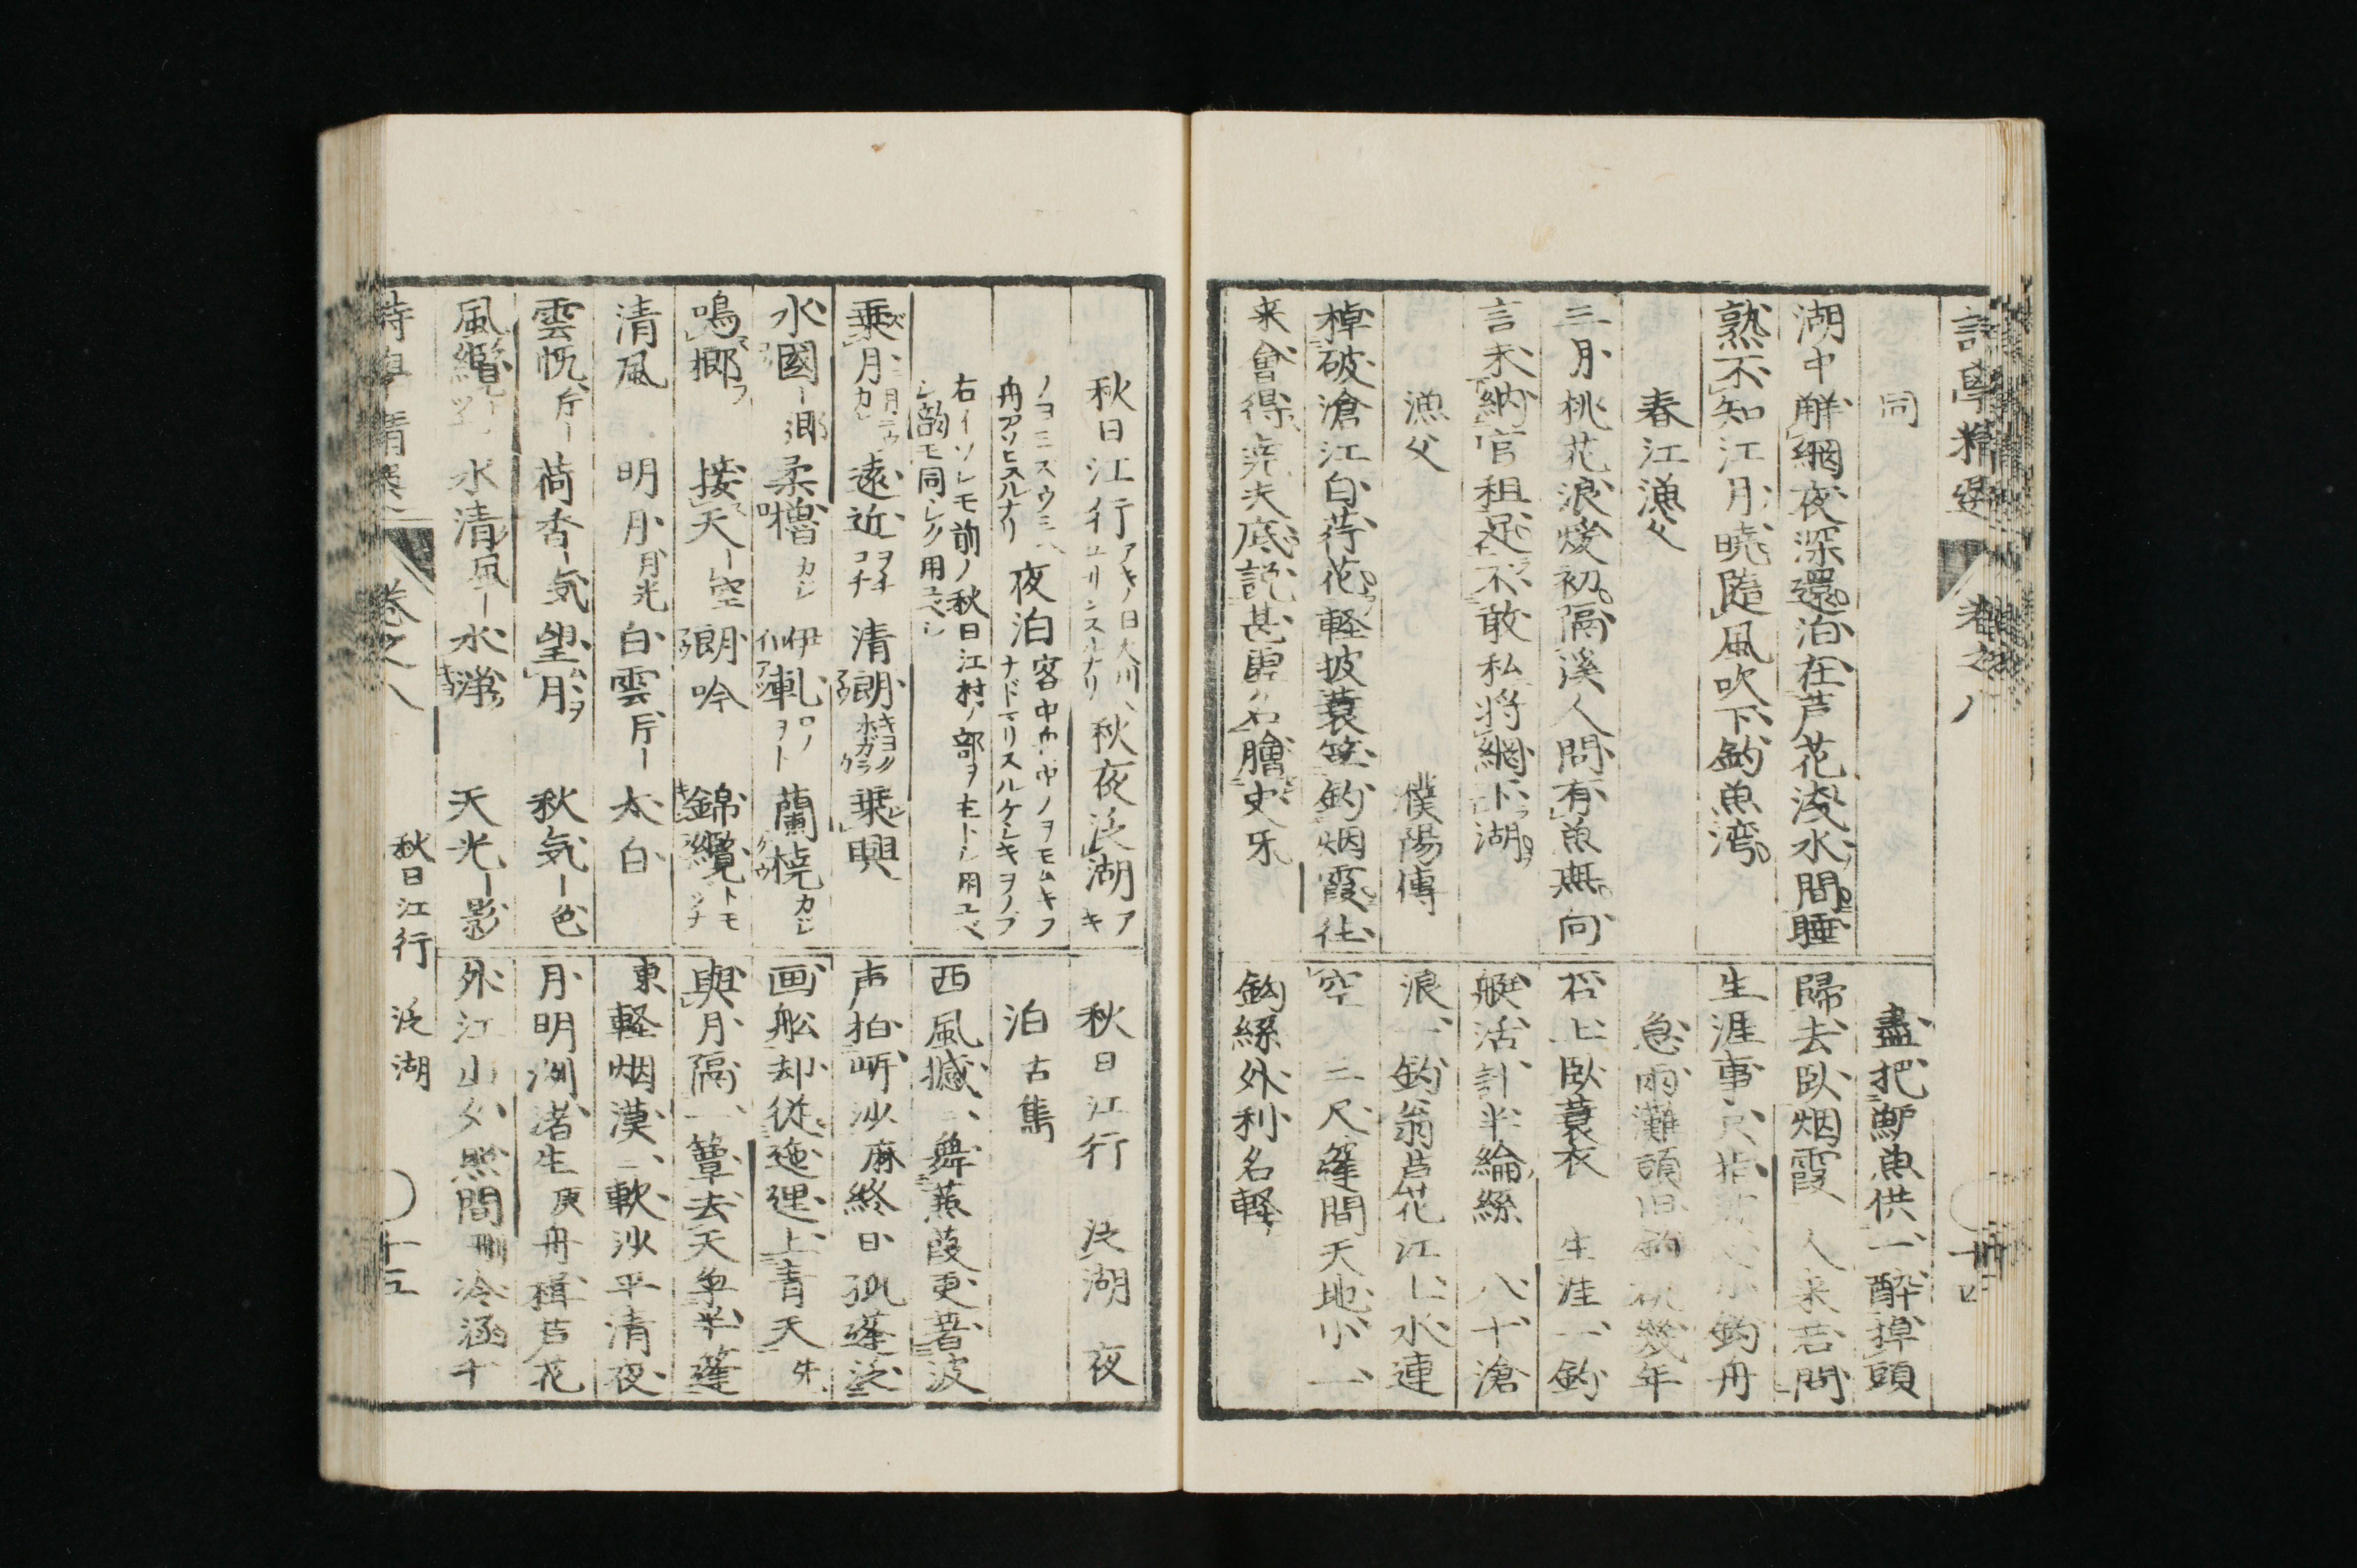 詩學精選 卷之八
同
湖中解網夜深還泊在芦花浅水間睡
熟不知江月暁隨風吹下釣魚湾
春江漁父
三月桃花浪煖初隔溪人問有魚無向
言未納官租足不敢私将網下湖
漁父 濮陽傳
棹破滄江白荇花軽披蓑笠釣烟霞往
来會得 夫底説甚 名膾史牙
盡把鱸魚供一酔掉頭
歸去臥烟霞 人来若問
生涯事 指 小釣舟
急雨灘頭旧釣 幾年
石上臥蓑衣 生涯一釣
艇活計半綸絲 八十滄
浪一釣翁芦花江上水連
空 三尺篷間天地小一
鈎絲外利名軽
十四
秋日江行アキノ日大川ユリンスルナリ 秋夜泛湖アキ
ノヨミズウミヘ舟アソヒスルナリ 夜泊客中舟中ノヲモムキフナドマリスルケシキヲノブ
右イツレモ前ノ秋日江村ノ部ヲ主トシ用ユベシ韻モ同シク用ユベシ
乗月 遠近ヲチコチ 清朗キヨクホガラク 乗興
水國ー郷 柔櫓カレ 咿軋ロノヲト 蘭橈カレ
鳴榔 接天ー空 朗吟 錦纜トモツナ
清風 明月月光 白雲片ー 太白
雲帆片ー 荷香ー気 望月 秋気ー色
風纜 水清風ー 水滑 天光ー影
秋日江行 泛湖 夜
泊 古集
西風撼ミ舞蒹葭更著波
声拍岍沙麻終日孤篷泛
画船却従迤逦上青天 朱
與月隔一簟去天争半篷
東軽烟漠ミ軟沙平清夜
月明洲渚生 庾舟楫芦花
外江山夕照間 冷涵千
詩學精選 卷之八 秋日江行 泛湖 十五